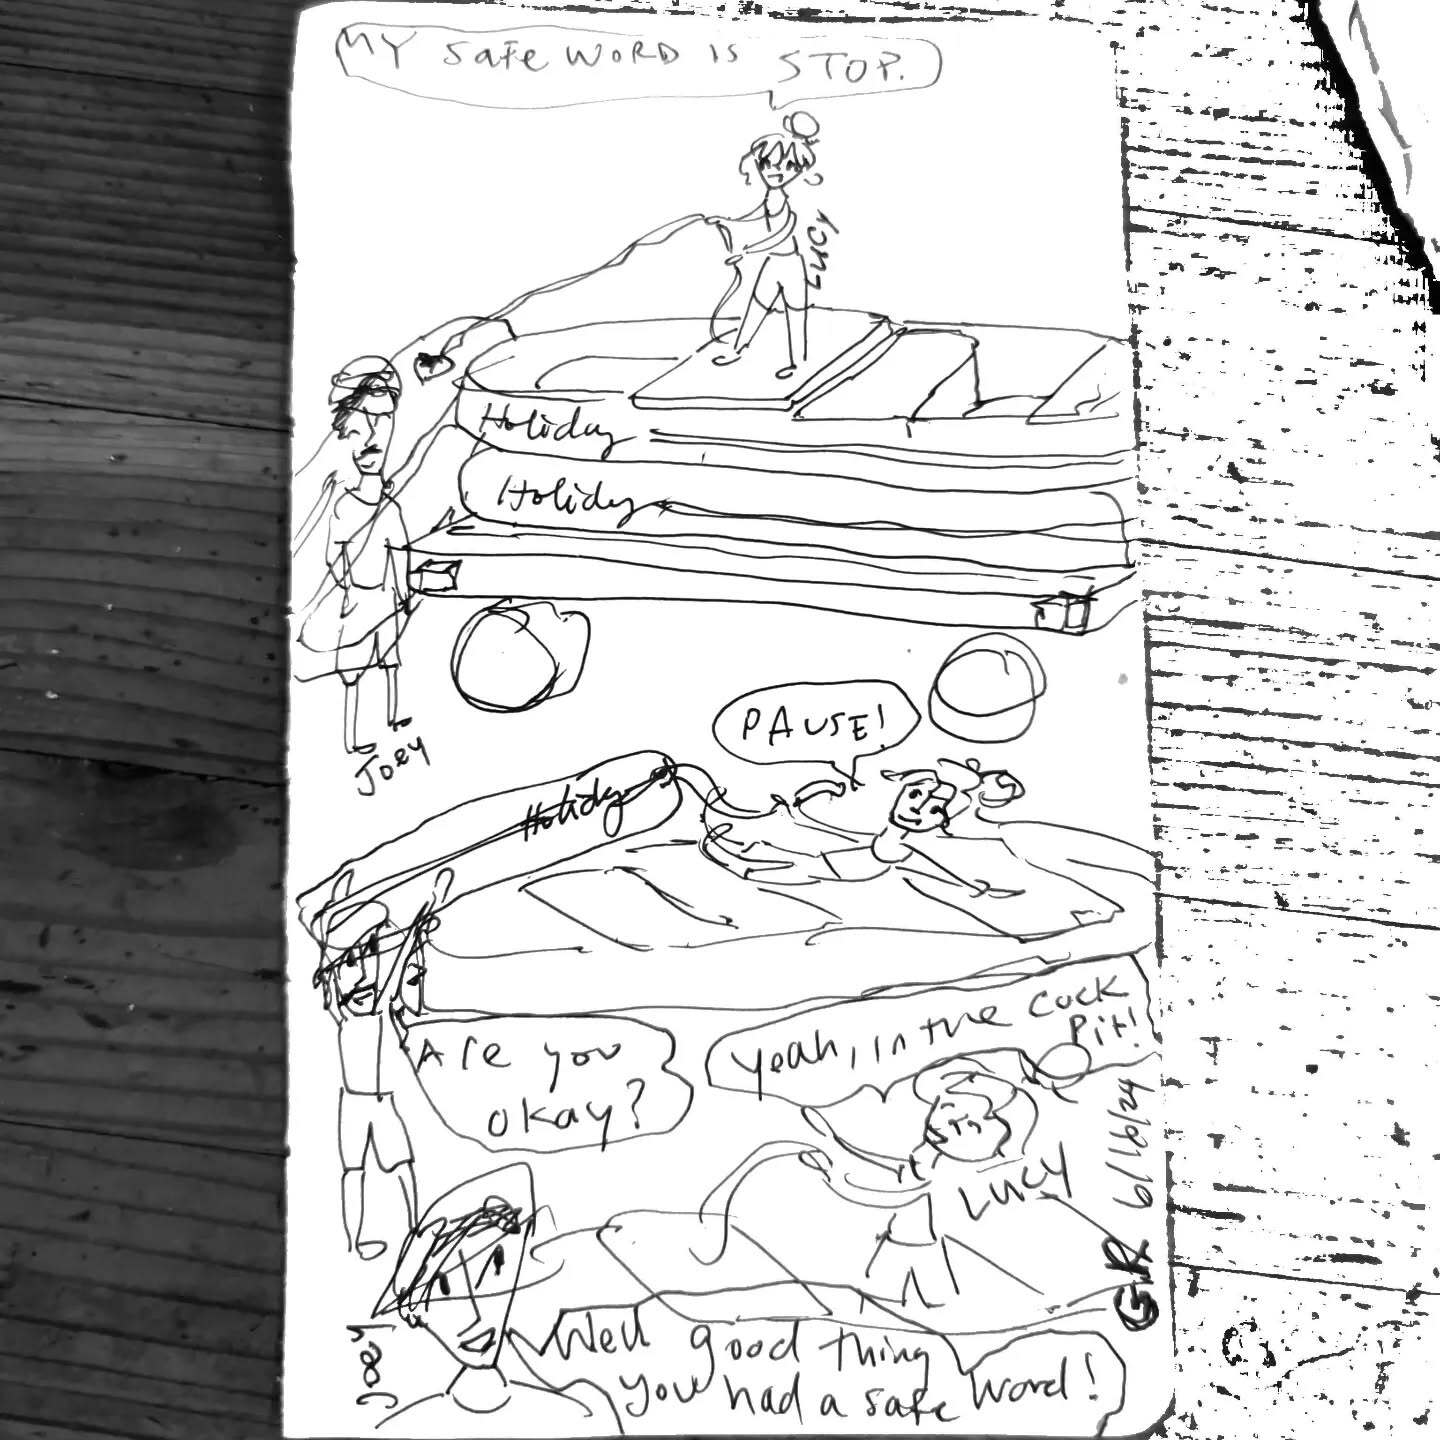 MY SAFE WORD IS STOP.
Holiday
Holiday
Joey
PAUSE!
Holiday
Are you
okay?
Yeah, in the cock
pit!
LUCY
6/16/24
GR
Joey
Well good thing
you had a safe word!